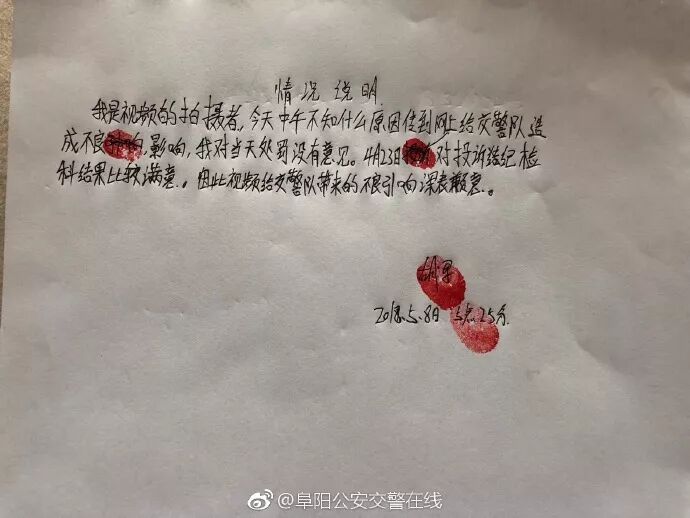 情况说明
我是视频的拍摄者,今天中午不知什么原因传到网上给交警队造
成不良,影响,我对当天处罚没有意见。4月23日对投诉给纪检
科结果比较满意。因此视频给交警队带来的不良引响深表歉意。
2018.5.8日 5点25分.
@阜阳公安交警在线